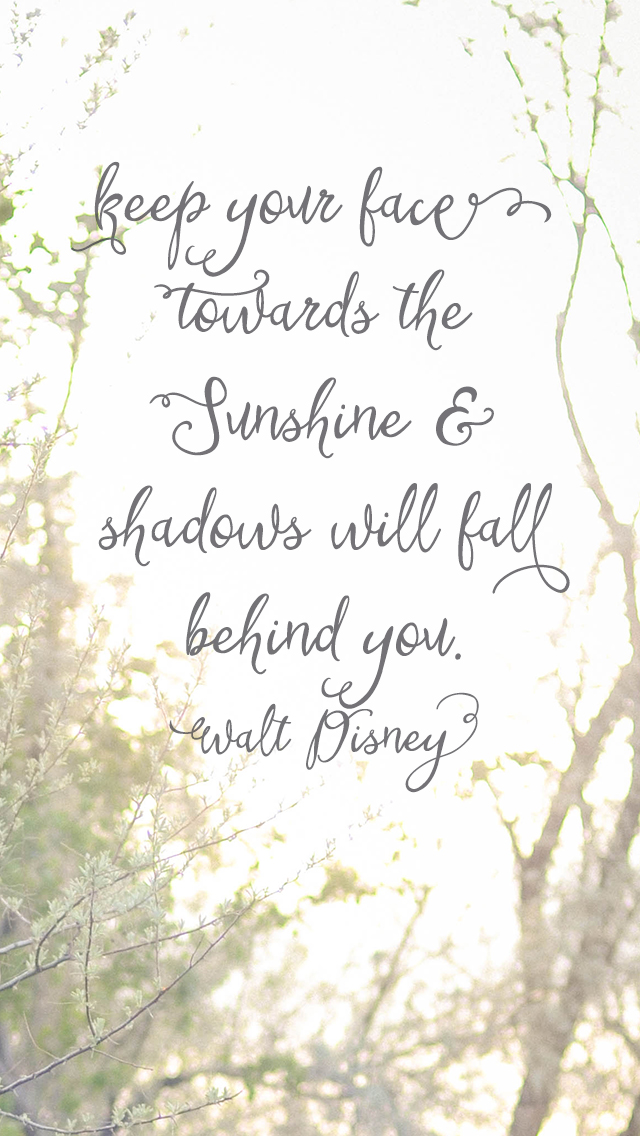 keep your face
towards the
Sunshine &
shadows will fall
behind you.
walt Disney